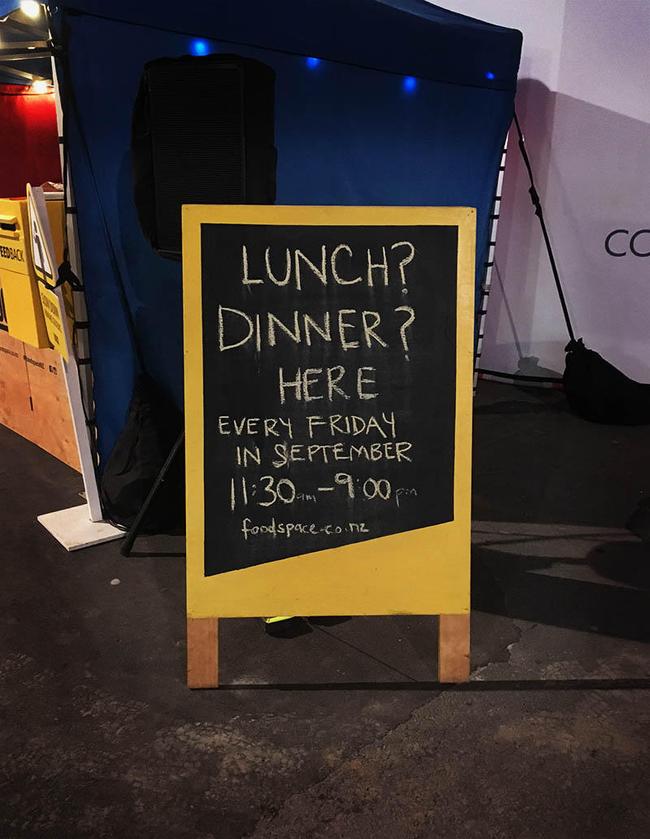 LUNCH?
DINNER?
HERE
EVERY FRIDAY
IN SEPTEMBER
11:30am-9:00pm
foodspace.co.nz
EEDBACK
CO